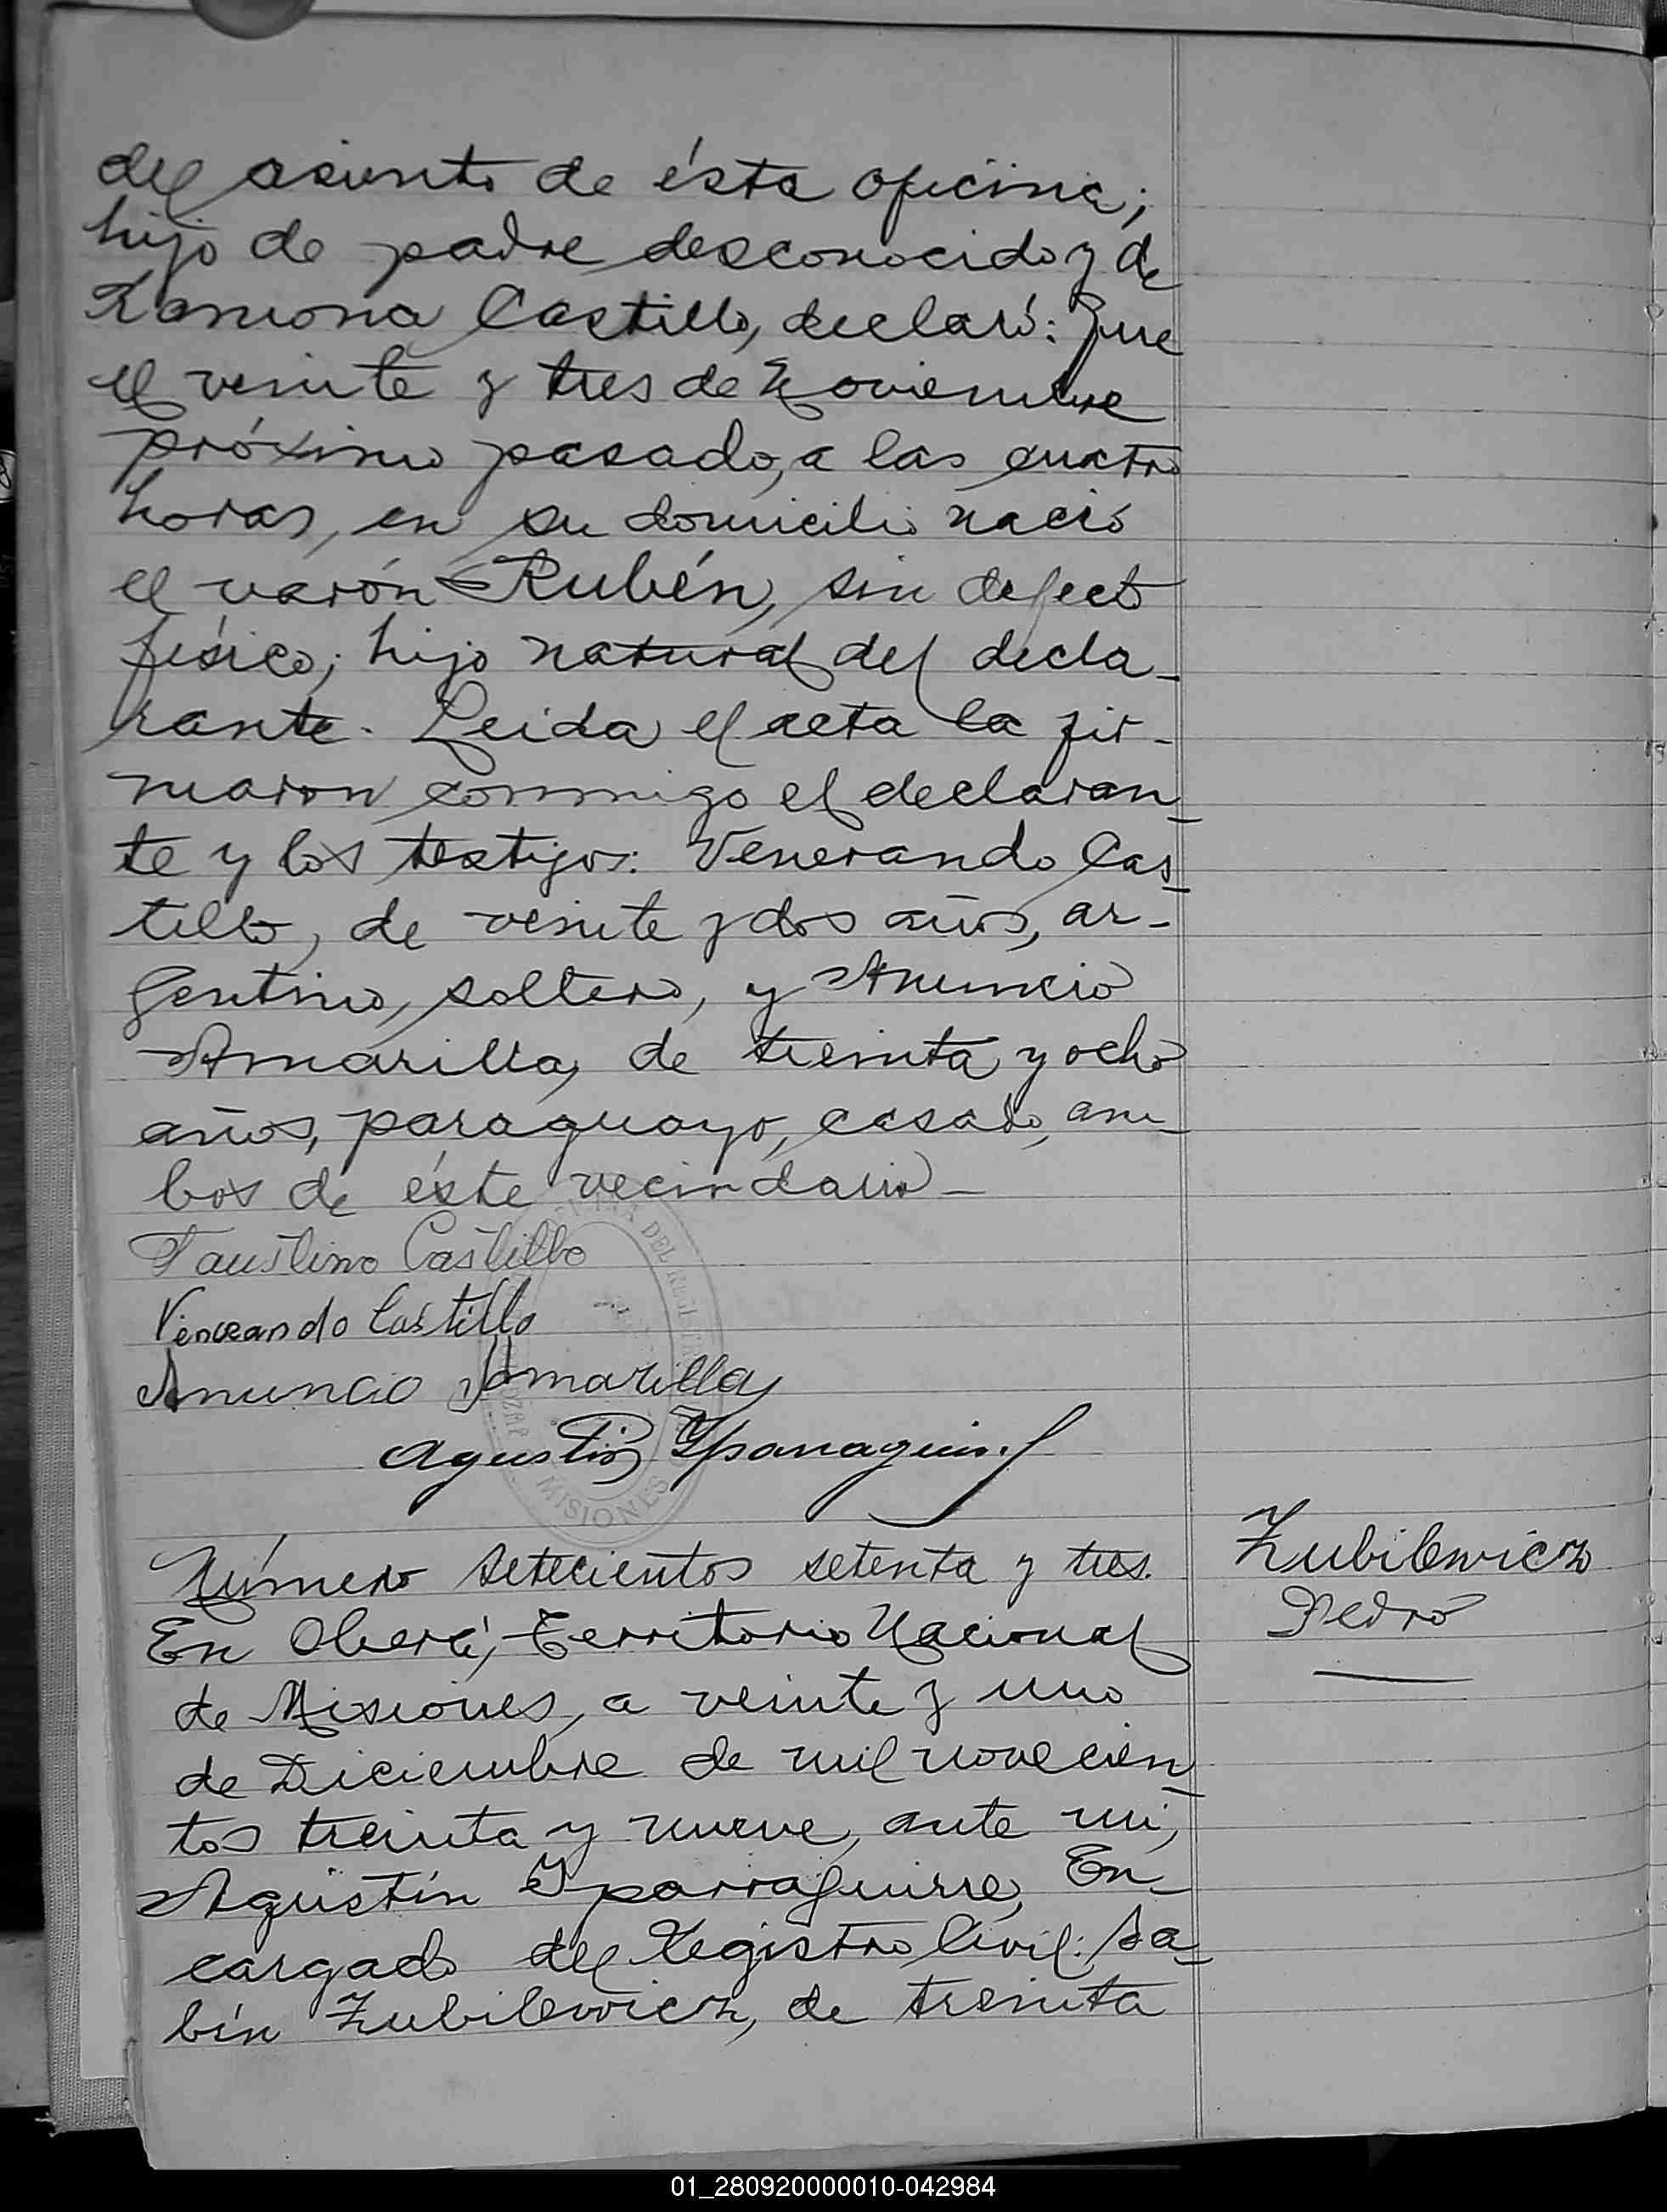 del asiento de ésta oficina;
hijo de padre desconocido y de
Ramona Castillo, declaró: Que
el veinte y tres de Noviembre
próximo pasado, a las cuatro
horas, en su domicilio nació
el varón Rubén, sin defecto
físico; hijo natural del decla-
rante. Leida el acta la fir-
maron conmigo el declaran-
te y los testigos: Venerando Cas-
tillo, de veinte y dos años, ar-
gentino, soltero, y Anuncio
Amarilla, de treinta y ocho
años, paraguayo, casado, am-
bos de éste vecindario-
Faustino Castillo
Venerando Castillo
Anuncio Amarilla
Agustín Yparraguirre
MISIONES
Número setecientos setenta y tres.
En Oberá, Territorio Nacional
de Misiones, a veinte y uno
de Diciembre de mil novecien-
tos treinta y nueve, ante mi,
Agustín Yparraguirre, En-
cargado del Registro Civil: Sa-
bín Zubilewicz, de treinta
Zubilewicz
Pedro
01_280920000010-042984